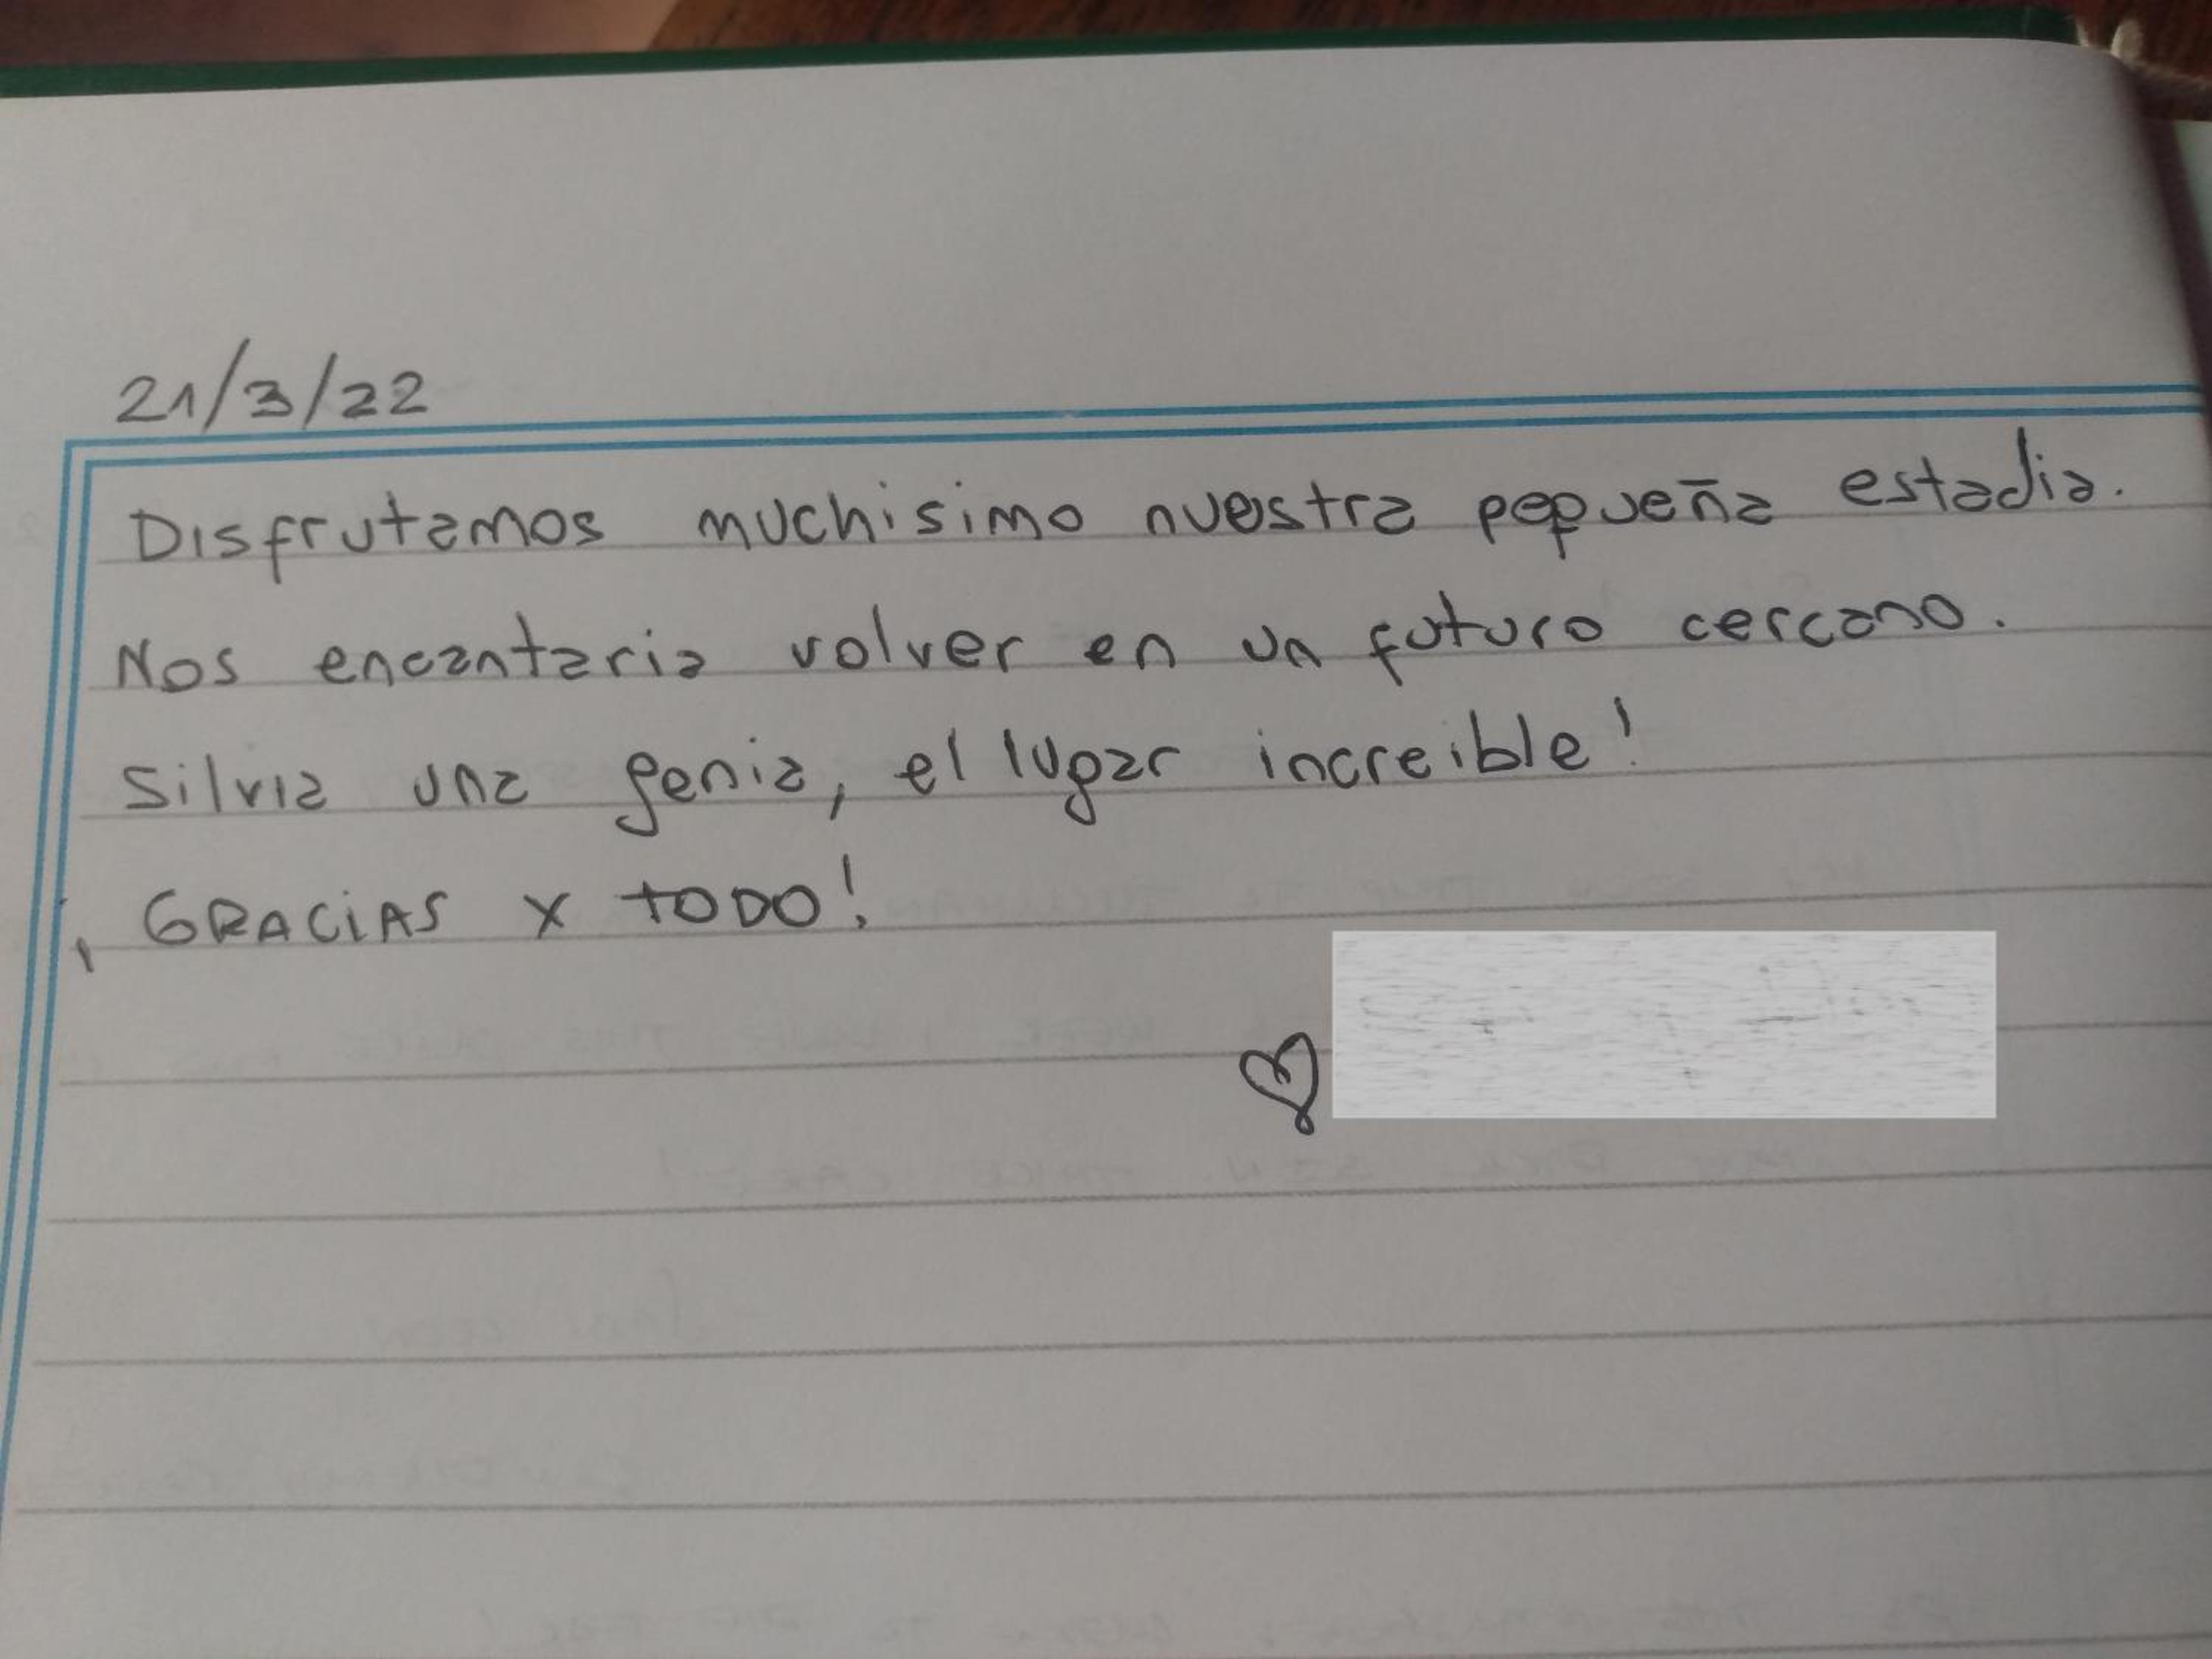 21/3/22
Disfrutamos muchisimo nuestra pequeña estadia.
Nos encantaria volver en un futuro cercano.
Silvia una genia, el lugar increible!
¡GRACiAS X toDO!